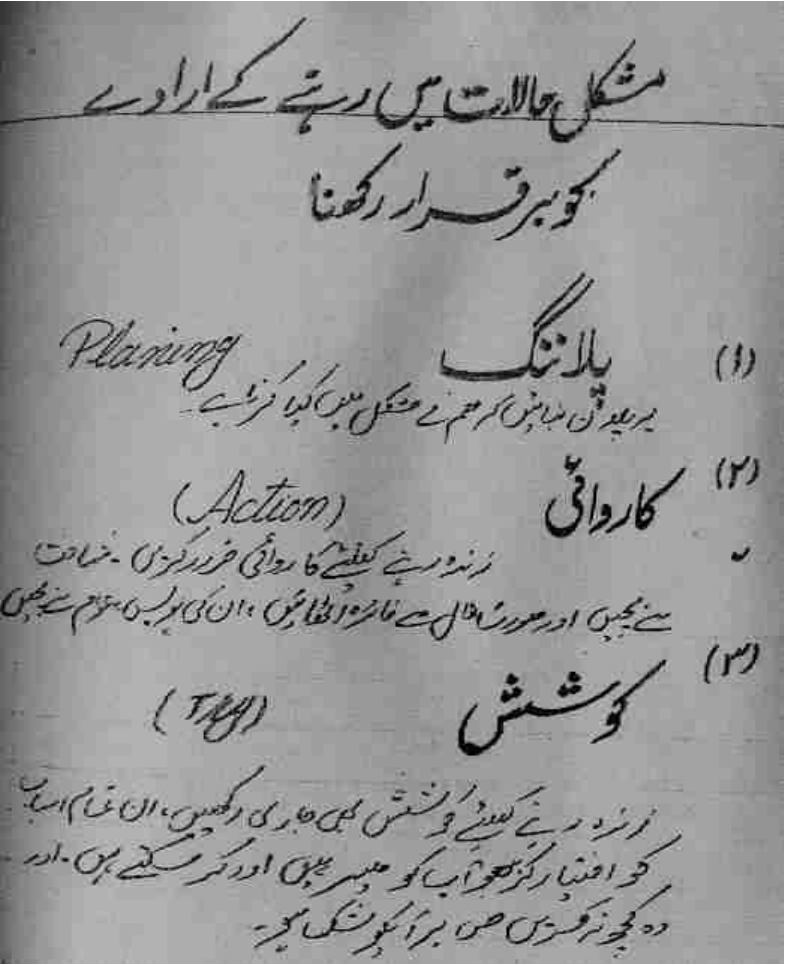 مشکل حالات میں رہنے کے ارادے
کو برقرار رکھنا
(۱) پلاننگ Planing
یہ پلان بنائیں کہ ہم نے مشکل میں کیا کرنا ہے۔
(۲) کاروائی (Action)
زندہ رہنے کیلئے کاروائی ضرور کریں۔
سے بچیں اور صورتحال سے فائدہ اٹھائیں، ان کی سے بچیں
(۳) کوشش (Try)
زندہ رہنے کیلئے کوشش بھی جاری رکھیں، ان تمام اسباب
کو اختیار کریں جو آپ کو میسر ہیں اور کر سکتے ہیں۔ اور
وہ کچھ نہ کریں جس پر آپکو شک ہو۔